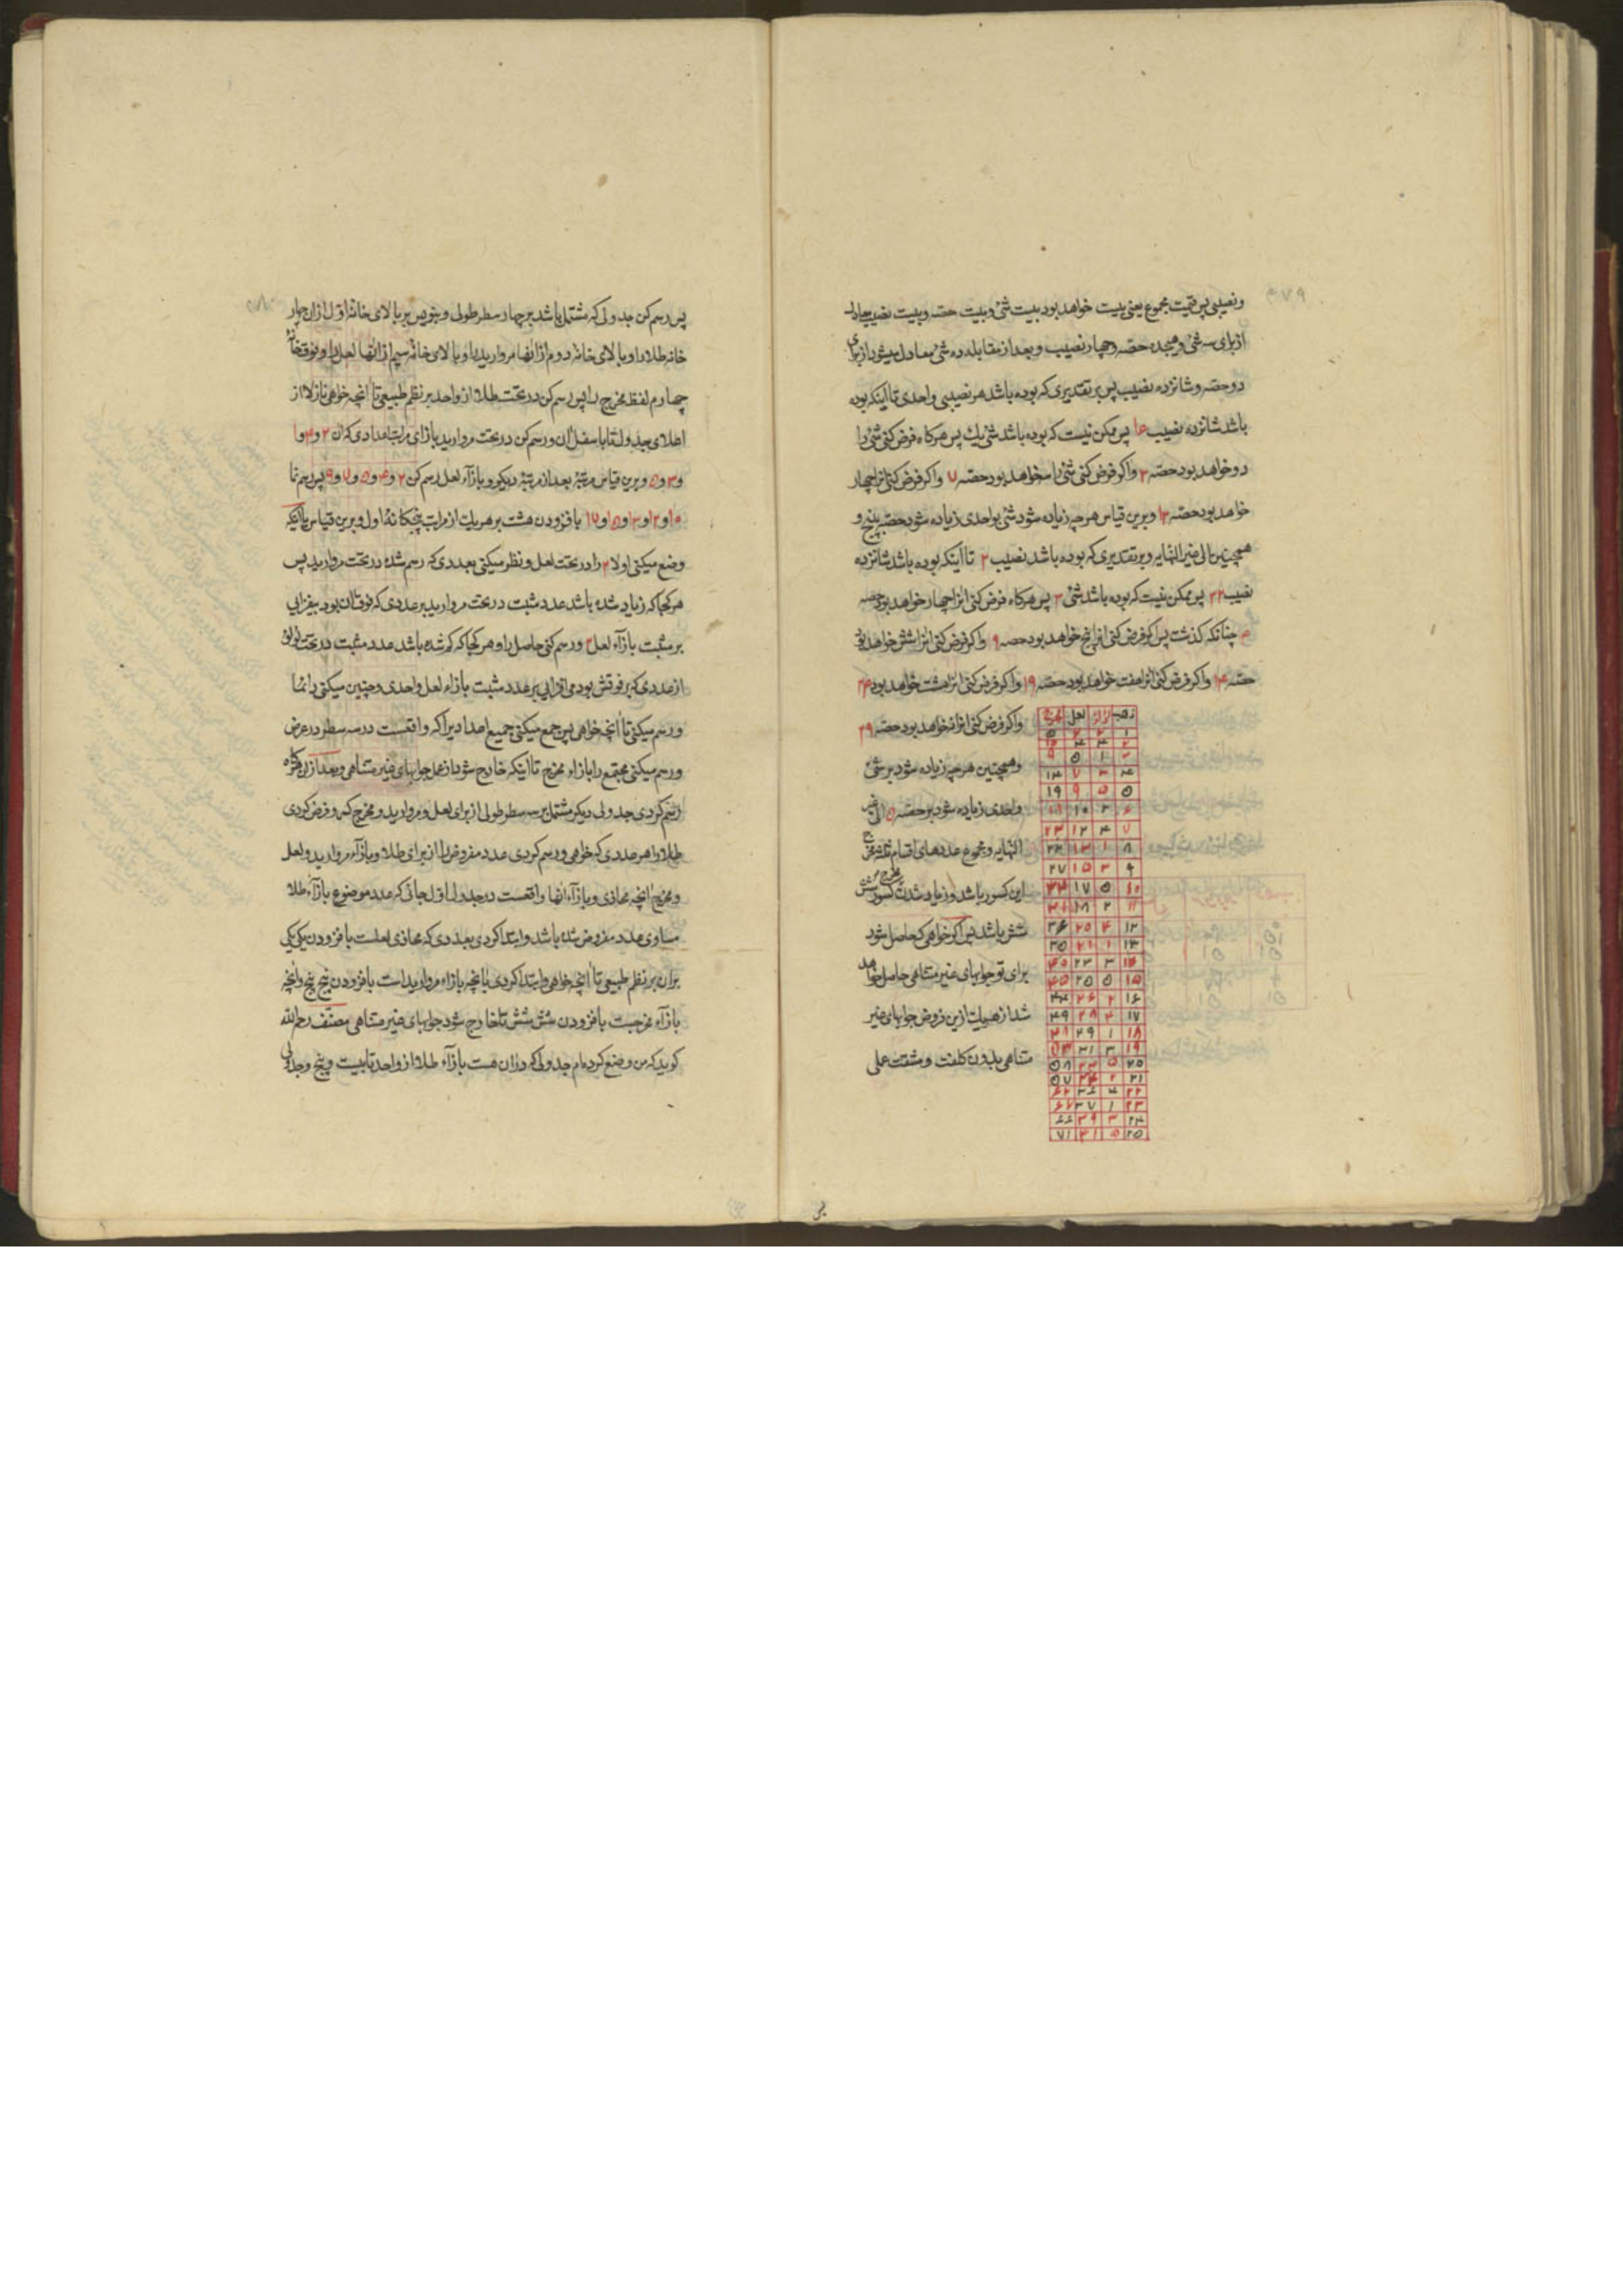 ۴۷۹
و نصیبی پس قیمت مجموع یعنی بیست خواهد بود بیست شئ و بیست حصه و بیست نصیب یعادل
از برای سه شئ و هیجده حصه و چهار نصیب و بعد از مقابله ده شئ معادل میشود از برای
دو حصه و شانزده نصیب پس بر تقدیری که بوده باشد هر نصیبی واحدی تا اینکه بوده
باشد شانزده نصیب ۱۶ پس ممکن نیست که بوده باشد شئ یک پس هرکاه فرض کنی شئ را
دو خواهد بود حصه ۲ و اکر فرض کنی شئ را سه خواهد بود حصه ۷ و اکر فرض کنی انرا چهار
خواهد بود حصه ۱۲ و برین قیاس هر چه زیاده شود شئ بواحدی زیاده شود حصه به پنج و
همچنین الی غیر النهایه و بر تقدیری که بوده باشد نصیب ۲ تا اینکه بوده باشد شانزده
نصیب ۳۲ پس ممکن نیست که بوده باشد شئ ۳ پس هرکاه فرض کنی انرا چهار خواهد بود حصه
۴ چنانکه کذشت پس اکر فرض کنی انرا پنج خواهد بود حصه ۹ و اکر فرض کنی انرا شش خواهد بود
حصه ۱۴ و اکر فرض کنی انرا هفت خواهد بود حصه ۱۹ و اکر فرض کنی انرا هشت خواهد بود ۲۴
و اکر فرض کنی انرا نه خواهد بود حصه ۲۹
و همچنین هر چه زیاده شود بر شئ
واحدی زیاده شود بر حصه ۵ الی غیر
النهایه و مجموع عددهای اقسام ثلثه مخرج
این کسور باشد و زیاد شدن کسور بر مخرج شش
شش باشد پس اکر خواهی که حاصل شود
برای تو جوابهای غیر متناهی حاصل خواهد
شد از هر یک ازین فروض جوابهای غیر
متناهی بدون کلفت و مشقت عملی
ذهب لؤلؤ لعل مخرج
۱ ۲ ۲ ۵
۲ ۴ ۴ ۱۰
۳ ۱ ۵ ۹
۴ ۳ ۷ ۱۴
۵ ۵ ۹ ۱۹
۶ ۲ ۱۰ ۱۸
۷ ۴ ۱۲ ۲۳
۸ ۱ ۱۳ ۲۲
۹ ۳ ۱۵ ۲۷
۱۰ ۵ ۱۷ ۳۲
۱۱ ۲ ۱۸ ۳۱
۱۲ ۴ ۲۰ ۳۶
۱۳ ۱ ۲۱ ۳۵
۱۴ ۳ ۲۳ ۴۰
۱۵ ۵ ۲۵ ۴۵
۱۶ ۲ ۲۶ ۴۴
۱۷ ۴ ۲۸ ۴۹
۱۸ ۱ ۲۹ ۴۸
۱۹ ۳ ۳۱ ۵۳
۲۰ ۵ ۳۳ ۵۸
۲۱ ۲ ۳۴ ۵۷
۲۲ ۴ ۳۶ ۶۲
۲۳ ۱ ۳۷ ۶۷
۲۴ ۳ ۳۹ ۶۶
۲۵ ۵ ۴۱ ۷۱
پس
پس رسم کن جدولی که مشتمل باشد بر چهار سطر طولی و بنویس بر بالای خانه اول از ان چهار
خانه طلا را و بالای خانه دوم از انها مروارید را و بالای خانه سیم از انها لعل را و فوق خانه
چهارم لفظ مخرج را پس رسم کن در تحت طلا از واحد بر نظم طبیعی تا انچه خواهی نازلا از
اعلای جدول تا باسفل ان و رسم کن در تحت مروارید بازای مراتب اعدادی که ان ۲ و ۴ و ۱
و ۳ و ۵ و برین قیاس مرتبه بعد از مرتبه دیکر و بازآء لعل رسم کن ۲ و ۴ و ۵ و ۷ و ۹ پس رسم نما
۱۰ و ۱۲ و ۱۳ و ۱۵ و ۱۷ بافزودن هشت بر هر یک از مراتب پنجکانهٔ اول و برین قیاس یا اینکه
وضع میکنی اولا ۲ را در تحت لعل و نظر میکنی بعددی که رسم شده در تحت مروارید پس
هر کجا که زیاد شده باشد عدد مثبت در تحت مروارید بر عددی که فوق ان بود بیفزایی
بر مثبت بازآء لعل ۲ و رسم کنی حاصل را و هر کجا که کم شده باشد عدد مثبت در تحت لؤلؤ
از عددی که بر فوقش بود می افزایی بر عدد مثبت بازاء لعل واحدی و چنین میکنی دائما
و رسم میکنی تا انچه خواهی پس جمع میکنی جمیع اعدادیرا که واقعست در سه سطر در عرض
و رسم میکنی مجتمع را بازاء مخرج تا اینکه خارج شود از عمل جوابهای غیر متناهی و بعد از ان هرکاه
رسم کردی جدولی دیکر مشتمل بر سه سطر طولی از برای لعل و مروارید و مخرج کسر و فرض کردی
طلا را هر عددی که خواهی و رسم کردی عدد مفروض را از برای طلا و بازآء مروارید و لعل
و مخرج انچه محاذی و بازآء انها واقعست در جدول اول جائی که عدد موضوع بازآء طلا
مساوی عدد مفروض شده باشد و ابتدا کردی بعددی که محاذی لعلست بافزودن یکی یکی
بران بر نظم طبیعی تا انچه خواهی و ابتدا کردی بانچه بازاء مروارید است بافزودن پنج پنج و انچه
بازآء مخرجست بافزودن شش شش تا خارج شود جوابهای غیر متناهی مصنف رحمه الله
کوید که من وضع کرده ام جدولی که در ان هست بازآء طلا از واحد تا بیست و پنج و جدولی